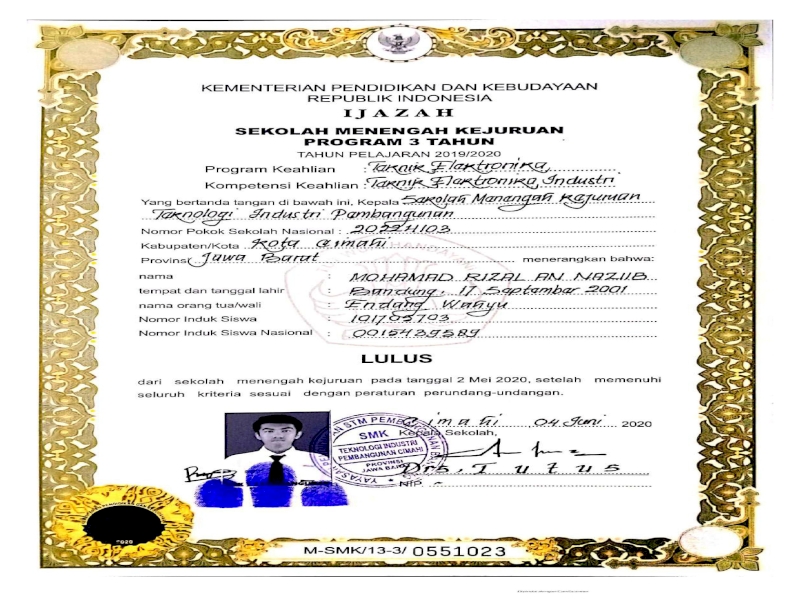 KEMENTERIAN PENDIDIKAN DAN KEBUDAYAAN
REPUBLIK INDONESIA
IJAZAH
SEKOLAH MENENGAH KEJURUAN
PROGRAM 3 TAHUN
TAHUN PELAJARAN 2019/2020
Program Keahlian : Teknik Elektronika
Kompetensi Keahlian : Teknik Elektronika Industri
Yang bertanda tangan di bawah ini, Kepala Sekolah Menengah Kejuruan
Teknologi Industri Pembangunan
Nomor Pokok Sekolah Nasional :
Kabupaten/Kota Kota Cimahi
Provinsi Jawa Barat menerangkan bahwa:
nama : MOHAMAD RIZAL AN NAZIIB
tempat dan tanggal lahir : Bandung, 17 September 2001
nama orang tua/wali : Endang Wahyu
Nomor Induk Siswa : 101703703
Nomor Induk Siswa Nasional : 0015439589
LULUS
dari sekolah menengah kejuruan pada tanggal 2 Mei 2020, setelah memenuhi
seluruh kriteria sesuai dengan peraturan perundang-undangan.
Cimahi 04 Juni 2020
Kepala Sekolah,
YAYASAN STM PEMBANGUNAN
SMK
TEKNOLOGI INDUSTRI
PEMBANGUNAN CIMAHI
PROVINSI
JAWA BARAT
Drs. Tutus
NIP -
2020
M-SMK/13-3/ 0551023